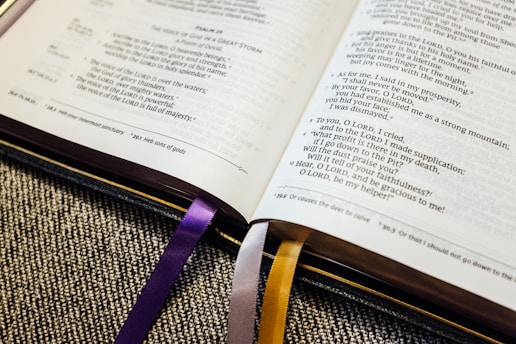 PSALM 29
THE VOICE OF GOD IN A GREAT STORM
A Psalm of David.
Ascribe to the LORD, O heavenly beings,
ascribe to the LORD glory and strength.
Ascribe to the LORD the glory of his name;
worship the LORD in holy splendor.
The voice of the LORD is over the waters;
the God of glory thunders,
the LORD, over mighty waters.
The voice of the LORD is powerful;
the voice of the LORD is full of majesty.
28.2 Heb your innermost sanctuary
29.1 Heb sons of gods
Sing praises to the LORD, O you his faithful
and give thanks to his holy name.
For his anger is but for a moment;
his favor is for a lifetime.
Weeping may linger for the night,
but joy comes with the morning.
As for me, I said in my prosperity,
"I shall never be moved."
By your favor, O LORD,
you had established me as a strong mountain;
you hid your face;
I was dismayed.
8 To you, O LORD, I cried,
and to the LORD I made supplication:
9 "What profit is there in my death,
if I go down to the Pit?
Will the dust praise you?
Will it tell of your faithfulness?
10 Hear, O LORD, and be gracious to me!
O LORD, be my helper!"
29.9 Or causes the deer to calve
30.3 Or that I should not go down to the